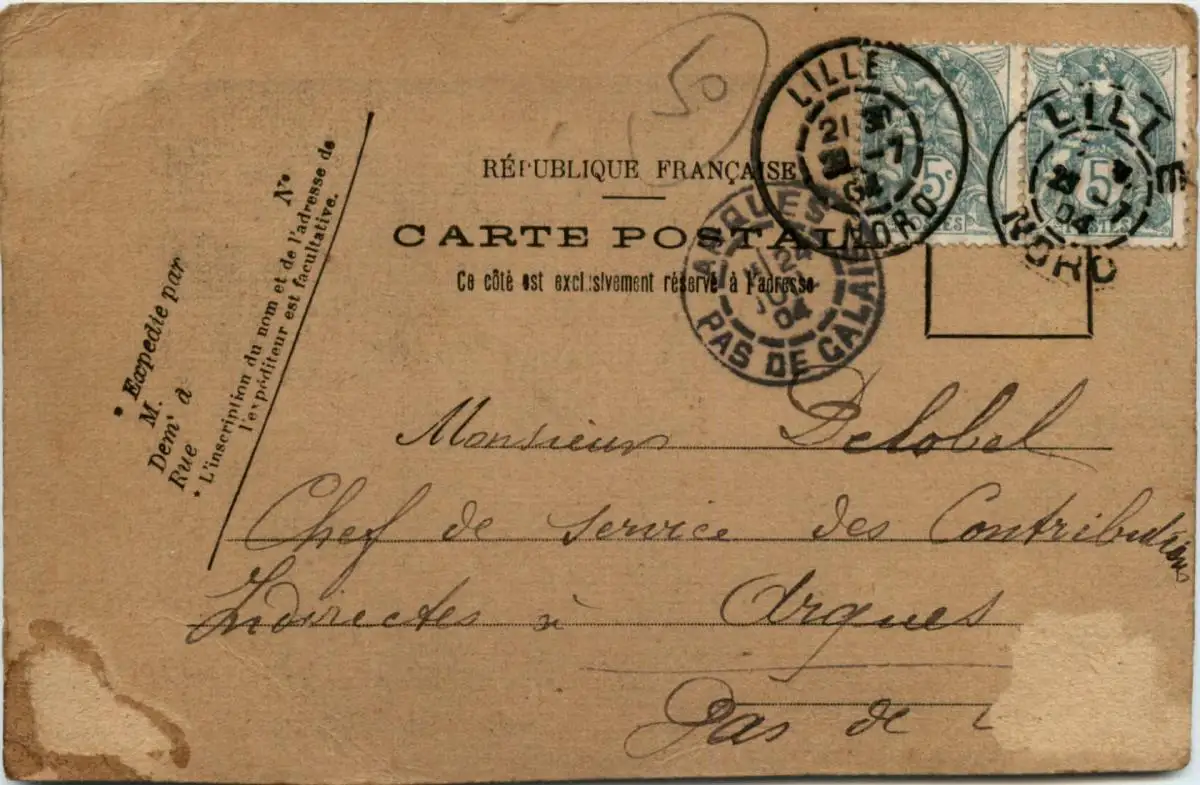 50
RÉPUBLIQUE FRANÇAISE
CARTE POSTALE
Ce côté est exclusivement réservé à l'adresse
LILLE
21
-7
04
NORD
5c
POSTES
LILLE
04
NORD
5
POSTES
ARQUES
24
04
PAS DE CALAIS
* Expédie par
M.
Demt à
Rue
N°
* L'inscription du nom et de l'adresse de
l'expéditeur est facultative.
Monsieur Delobel
Chef de service des Contributions
Indirectes à Arques
Pas de